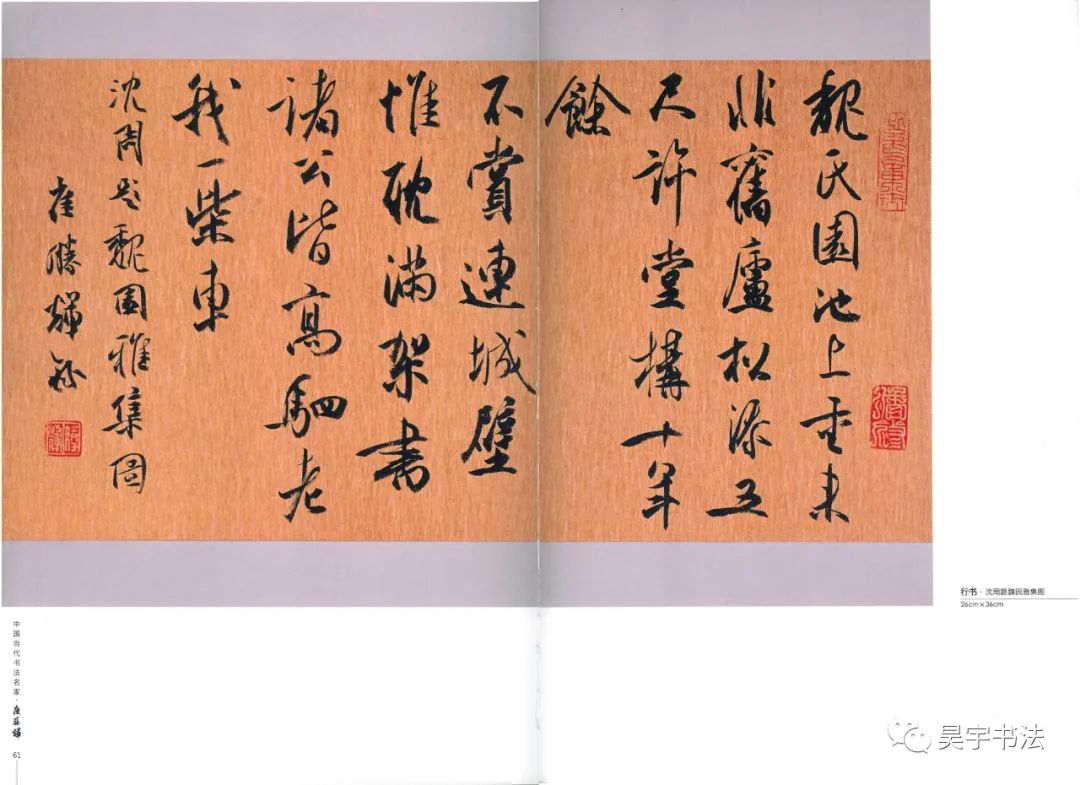 魏氏園池上重来
非舊廬松添五
尺許堂構十年
餘
不賞連城璧
惟耽滿架書
諸公皆高駟老
我一柴車
沈周題魏園雅集圖
崔勝輝
行书·沈周题魏园雅集图
26cm×36cm
中国当代书法名家·崔勝輝
61
昊宇书法